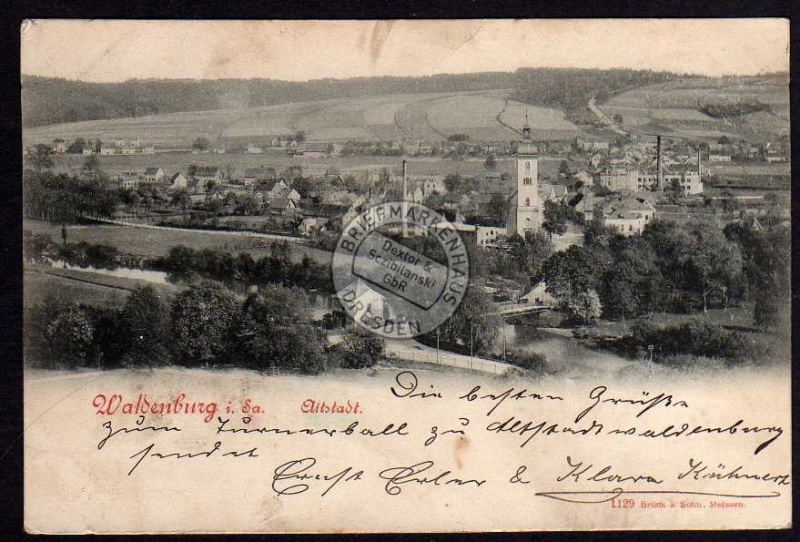 BRIEFMARKENHAUS
Dextor &
Sczibilanski
GbR
DRESDEN
Waldenburg i. Sa. Altstadt.
Die besten Grüße
zum Turnerball zu Altstadtwaldenburg
sendet
Ernst Erler & Klara Kühnerz
1129 Brück & Sohn, Meissen.